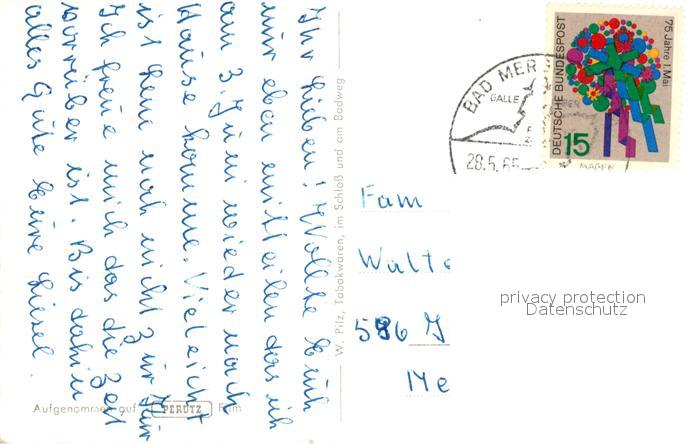 Ihr Lieben! Wollte Euch
nur eben mitteilen das ich
am 3. Juni wieder nach
Hause komme. Vieleicht
ist Rene noch nicht zur
Ich freue mich das die Zeit
vorrüber ist. Bis dahin
alles Gute Eure Liesel
W. Pilz, Tabakwaren, im Schloß und am Badweg
Aufgenommen auf PERUTZ Film
BAD MER
GALLE
28.5.65
MAGEN
DEUTSCHE BUNDESPOST
75 Jahre 1. Mai
15
Fam
Walte
586 J
Me
privacy protection
Datenschutz